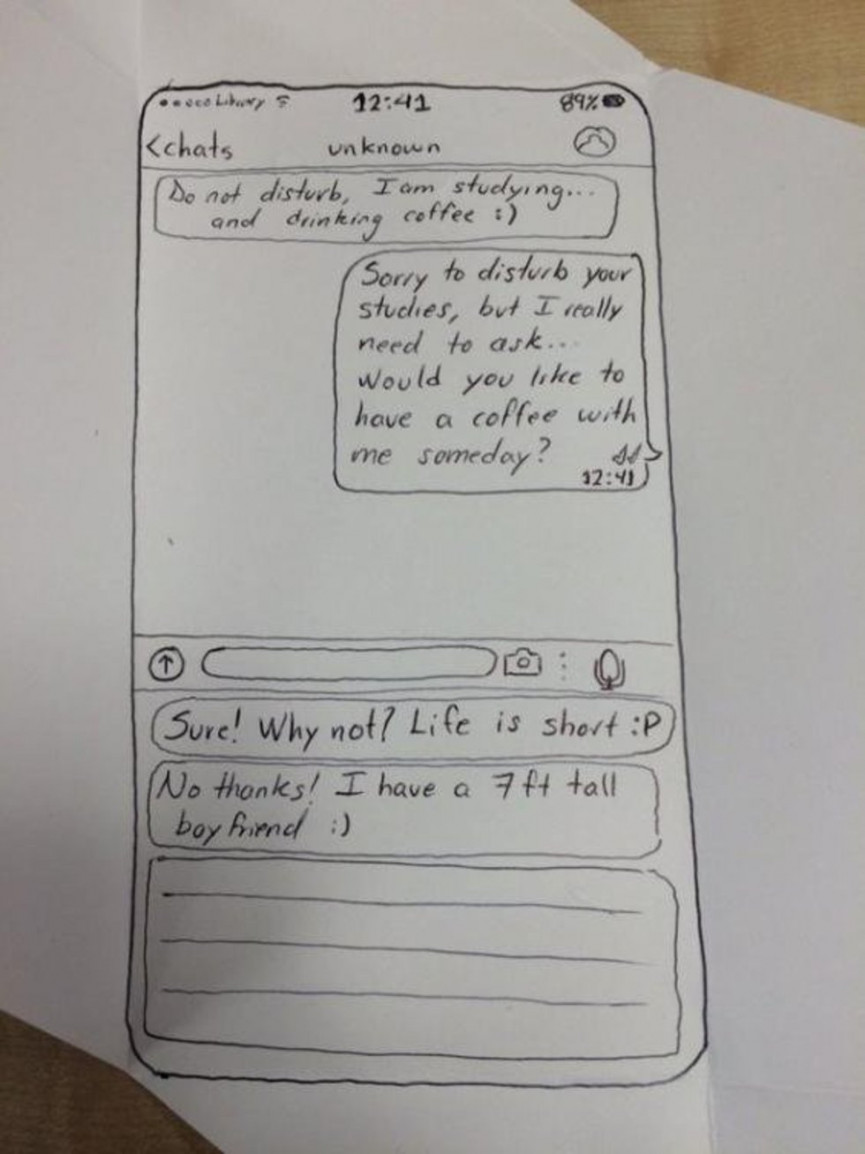 Library 12:41 89%
<chats unknown
Do not disturb, I am studying...
and drinking coffee :)
Sorry to disturb your
studies, but I really
need to ask...
Would you like to
have a coffee with
me someday?
12:41
Sure! Why not? Life is short :P
No thanks! I have a 7 ft tall
boyfriend :)